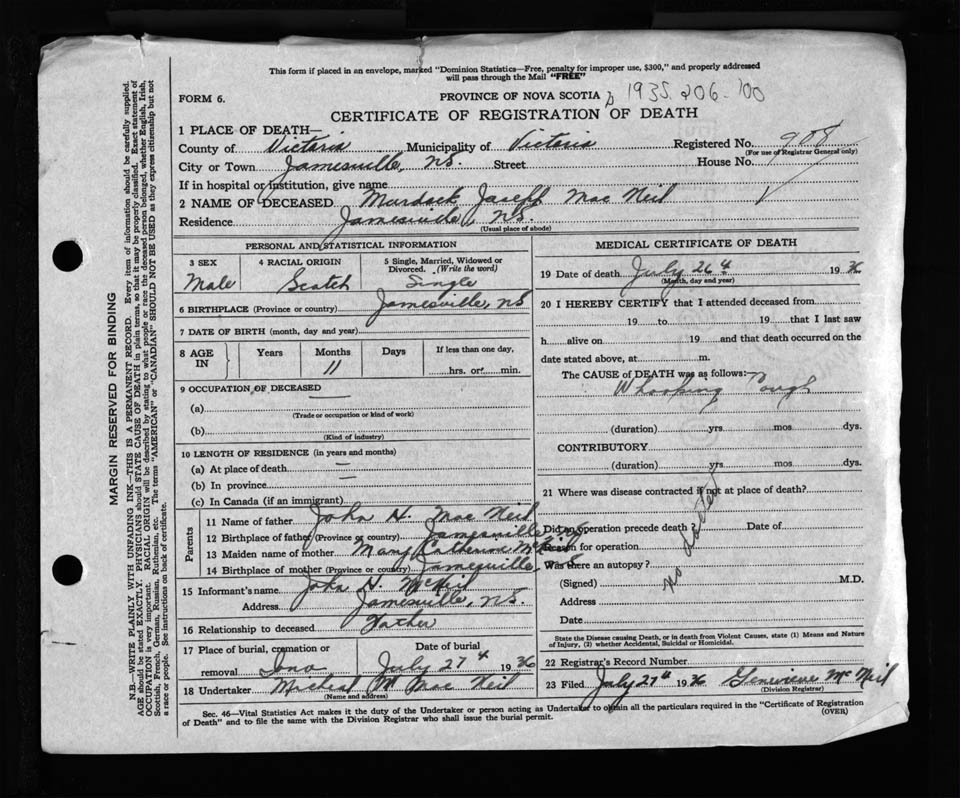 This form if placed in an envelope, marked "Dominion Statistics—Free, penalty for improper use, $300," and properly addressed
will pass through the Mail "FREE"
FORM 6.
PROVINCE OF NOVA SCOTIA 1935 206-100
CERTIFICATE OF REGISTRATION OF DEATH
1 PLACE OF DEATH—
County of Victoria Municipality of Victoria Registered No. 908
(For use of Registrar General only)
City or Town Jamesville, N.S. Street House No.
If in hospital or institution, give name
2 NAME OF DECEASED Murdock Joseph Mac Neil
Residence Jamesville, N.S.
(Usual place of abode)
PERSONAL AND STATISTICAL INFORMATION
3 SEX 4 RACIAL ORIGIN 5 Single, Married, Widowed or Divorced. (Write the word)
Male Scotch Single
6 BIRTHPLACE (Province or country) Jamesville, N.S.
7 DATE OF BIRTH (month, day and year)
8 AGE IN Years Months Days If less than one day,
11 hrs. or min.
9 OCCUPATION OF DECEASED
(a)
(Trade or occupation or kind of work)
(b)
(Kind of industry)
10 LENGTH OF RESIDENCE (in years and months)
(a) At place of death
(b) In province
(c) In Canada (if an immigrant)
Parents
11 Name of father John H. Mac Neil
12 Birthplace of father (Province or country) Jamesville N.S.
13 Maiden name of mother Mary Catherine
14 Birthplace of mother (Province or country) Jamesville, N.S.
15 Informant's name John H. McNeil
Address Jamesville, N.S.
16 Relationship to deceased Father
17 Place of burial, cremation or removal Iona Date of burial July 27th 1936
18 Undertaker Michael M Mac Neil
(Name and address)
MEDICAL CERTIFICATE OF DEATH
19 Date of death July 26th 1936
(Month, day and year)
20 I HEREBY CERTIFY that I attended deceased from
19 to 19 that I last saw
h alive on 19 and that death occurred on the
date stated above, at m.
The CAUSE of DEATH was as follows:—
Whooping Cough
(duration) yrs. mos. dys.
CONTRIBUTORY
(duration) yrs. mos. dys.
21 Where was disease contracted if not at place of death?
Did an operation precede death? Date of
Reason for operation
Was there an autopsy?
No Doctor
(Signed) M.D.
Address
Date
State the Disease causing Death, or in death from Violent Causes, state (1) Means and Nature
of Injury, (2) whether Accidental, Suicidal or Homicidal.
22 Registrar's Record Number
23 Filed July 27th 1936 Genevieve McNeil
(Division Registrar)
Sec. 46—Vital Statistics Act makes it the duty of the Undertaker or person acting as Undertaker to obtain all the particulars required in the "Certificate of Registration
of Death" and to file the same with the Division Registrar who shall issue the burial permit. (OVER)
MARGIN RESERVED FOR BINDING
N.B.—WRITE PLAINLY WITH UNFADING INK—THIS IS A PERMANENT RECORD. Every item of information should be carefully supplied.
AGE should be stated EXACTLY. PHYSICIANS should STATE CAUSE OF DEATH in plain terms, so that it may be properly classified. Exact statement of
OCCUPATION is very important. RACIAL ORIGIN will be described by stating to what people or race the deceased person belonged, whether English, Irish,
Scottish, French, German, Russian, Ruthenian, etc. The terms "AMERICAN" or "CANADIAN" SHOULD NOT BE USED as they express citizenship but not
a race or people. See instructions on back of certificate.